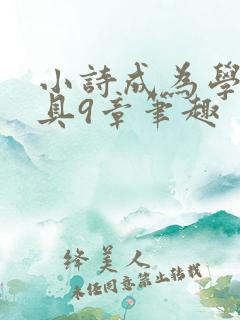 小詩成為學
具9章筆趣
绛美人
未经同意禁止转载